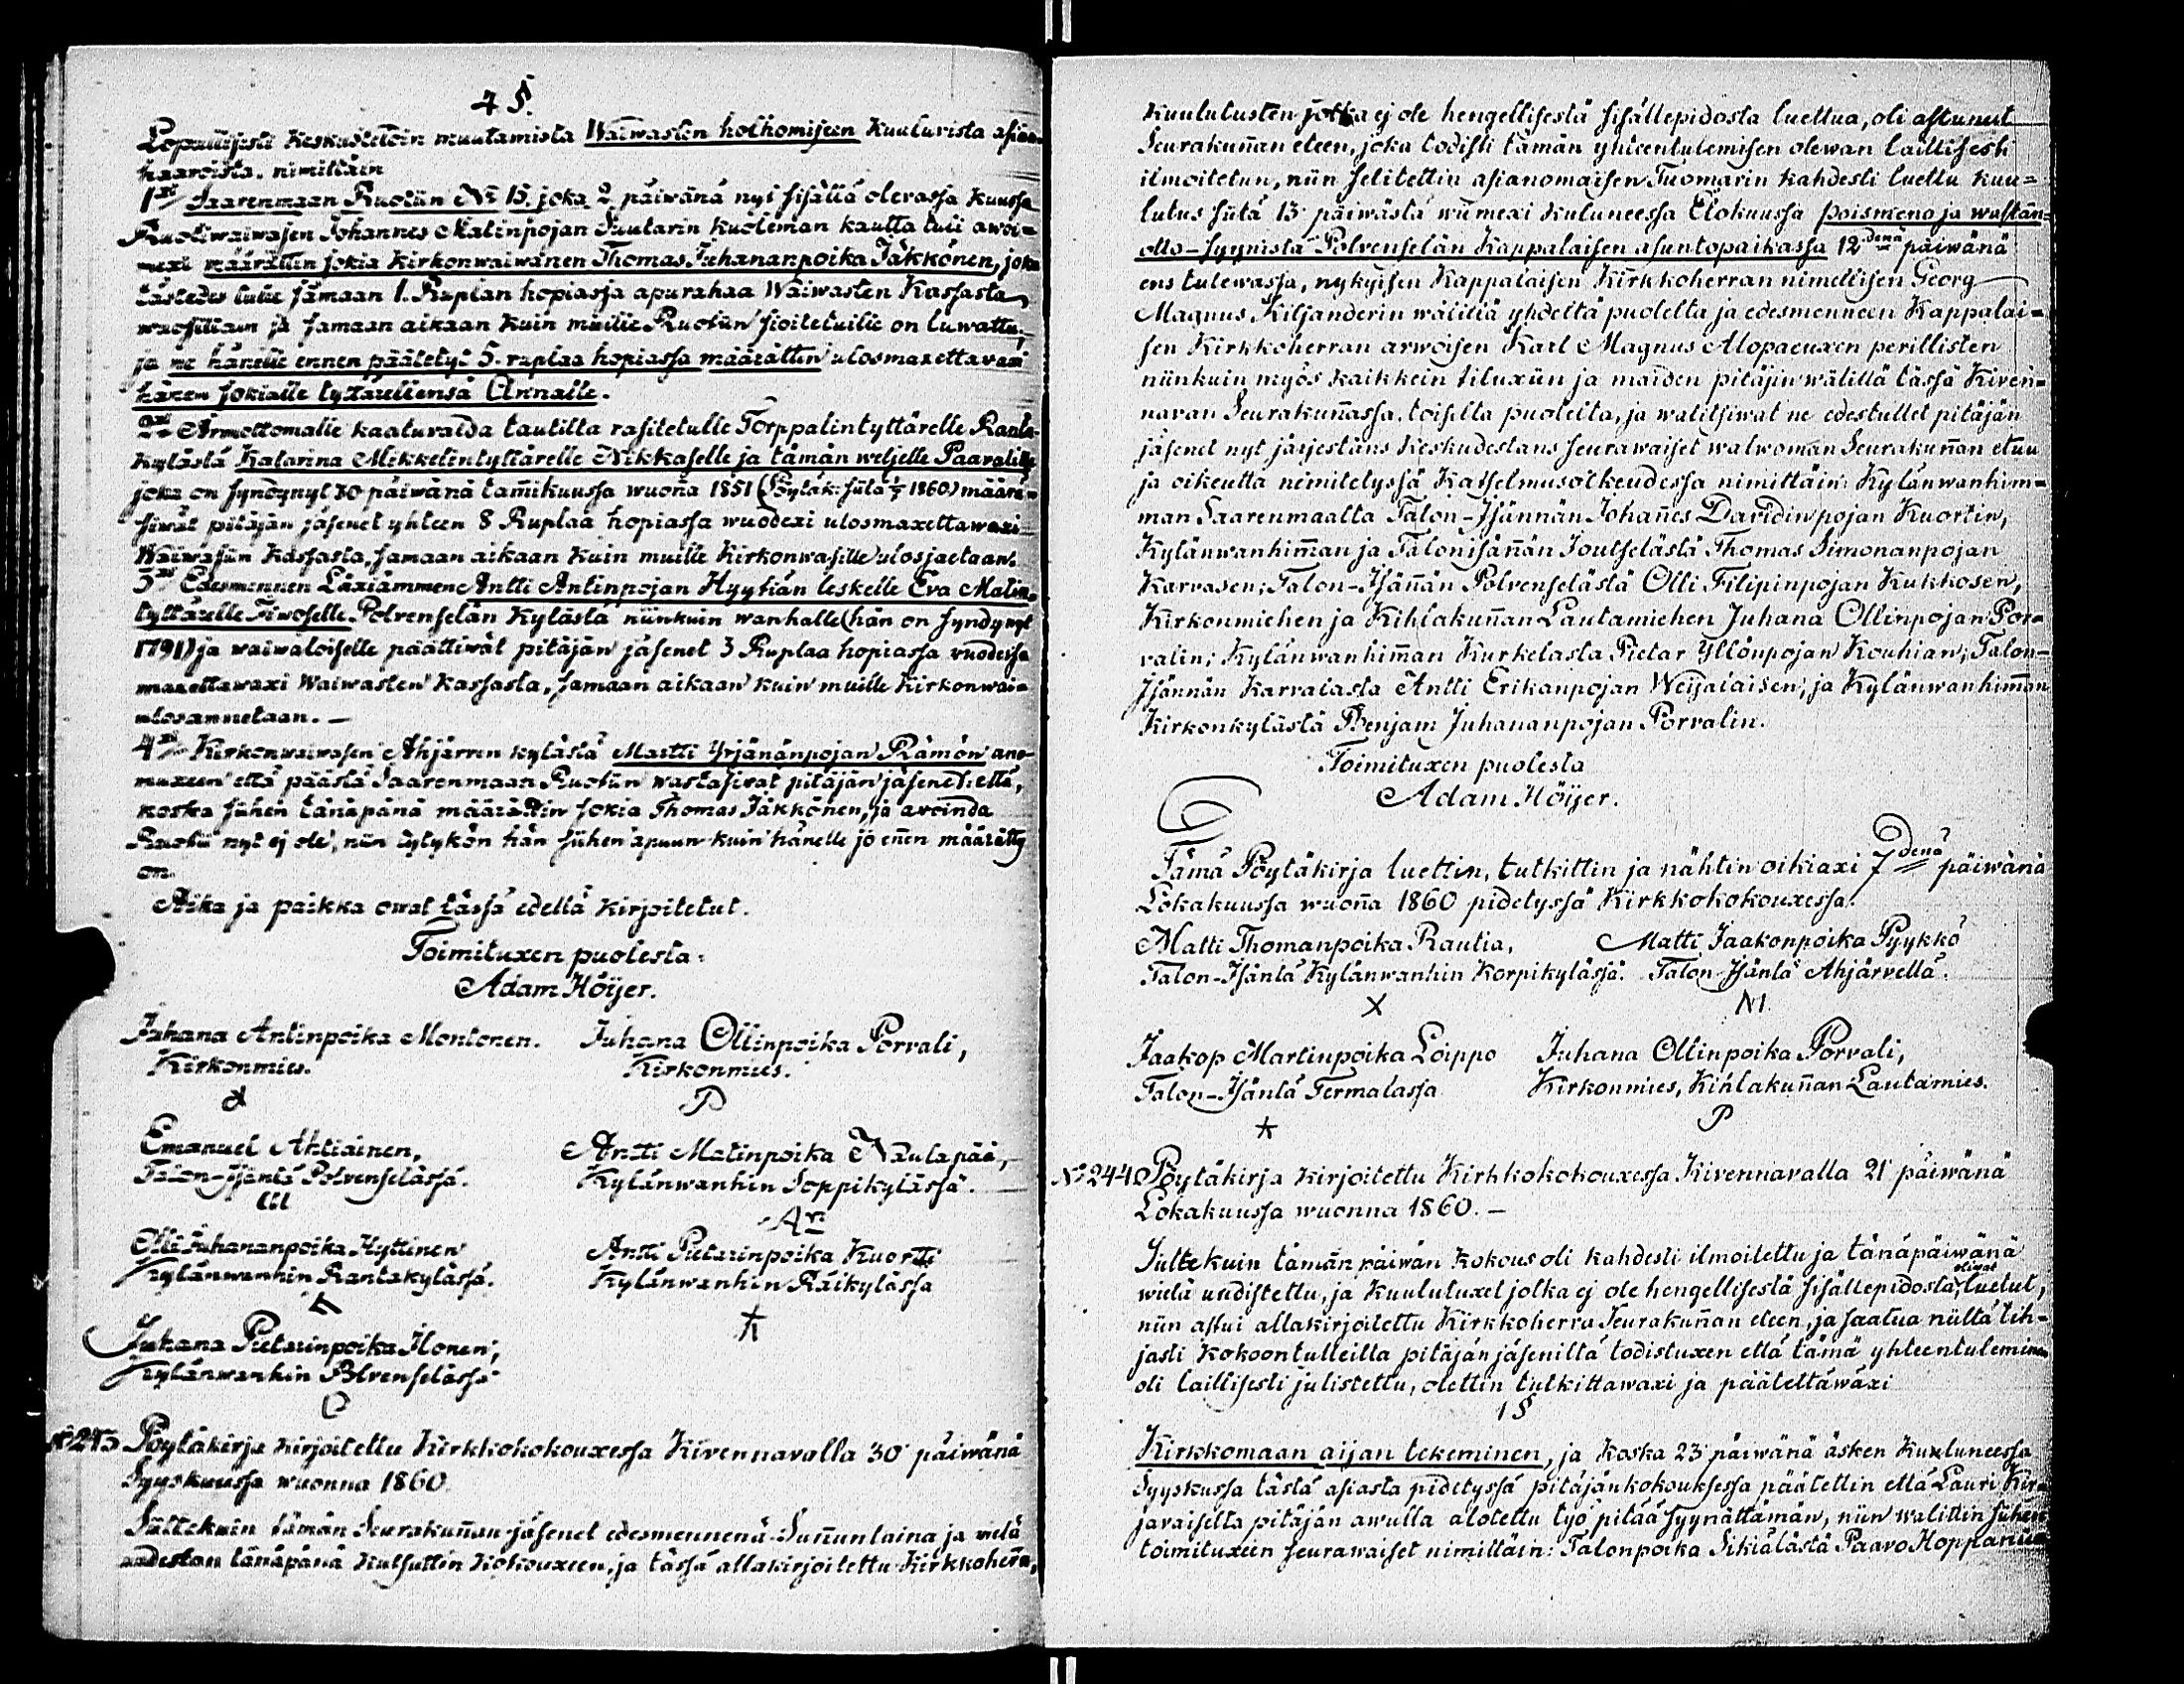 4 §.
Lopullisesti Keskusteltoin muutamista Waiwasten holhomiseen Kuuluvista asian-
haaroista, nimittäin
1xi Saarenmaan Ruotiin No 15. joka 2 päiwänä nyt sisällä olevassa Kuussa
Ruotiwaiwasen Johannes Matinpojan Suutarin Kuoleman kautta tuli awoi-
mexi määrättin sokia Kirkonwaiwanen Thomas Juhananpoika Jäkkönen, joka
tästedes tulee saamaan 1. Ruplan hopiassa apurahaa Waiwasten Kassasta,
wuosittain ja samaan aikaan Kuin muille Ruotiin sioitetuille on luwattu;
ja ne hänelle ennen päätetyt 5. ruplaa hopiassa määrättin ulosmaxettavaxi
hänen sokialle tyttärellensä Annalle.
2xi Armottomalle kaatuvaida tautilta rasitetulle Torppalintyttärelle Ranta-
kylästä Katarina Mikkelintyttärelle Nikkaselle ja tämän weljelle Paavalille
joka on syndynyt 30 päiwänä tamikuussa wuona 1851 (Pöytäk: siitä 1/5 1860) määrä-
siwät pitäjän jäsenet yhteen 8 Ruplaa hopiassa wuodexi ulosmaxettawaxi
Waiwaisiin Kassasta, samaan aikaan Kuin muille Kirkonwasille ulosjaetaan.
3xi Edesmennen Läxiämmen Antti Antinpojan Hyytiän leskelle Eva Matin-
tyttärelle Tiwoselle Polvenselän Kylästä niinkuin wanhalle (hän on syndynyt
1791) ja waiwaloiselle päättiwät pitäjän jäsenet 3 Ruplaa hopiassa vuodessa
maxettawaxi Waiwasten Kassasta, samaan aikaan kuin muille Kirkonwai-
ulosannetaan. —
4xi Kirkonwaiwasen Ahjärven kylästä Martti Yrjänänpojan Rämön ano-
muxeen että päästä Saarenmaan Ruotiin wastasivat pitäjän jäsenet: että,
koska siihen tänäpänä määrättin sokia Thomas Jäkkönen, ja avoinda
Ruotii nyt ej ole, niin tytykön hän siihen apuun kuin hänelle jo enen määrätty
on.
Aika ja paikka owat tässä edellä Kirjoitetut.
Toimituxen puolesta:
Adam Höijer.
Juhana Antinpoika Montonen. Juhana Ollinpoika Porvali,
Kirkonmies. Kirkonmies.
P
Emanuel Ahtiainen, Antti Matinpoika Naulapää,
Talon-Isäntä Polvenselässä. Kylänwanhin Joppikylässä.
Olli Juhananpoika Hyttinen Antti Pietarinpoika Kuortti
Kylänwanhin Rantakylässä. Kylänwanhin Räikylässä
Juhana Pietarinpoika Ilonen,
Kylänwanhin Polvenselässä
No 243 Pöytäkirja Kirjoitettu Kirkkokokouxessa Kivennavalla 30 päiwänä
Syyskuussa wuonna 1860.
Sittekuin tämän Seurakunan jäsenet edesmennenä Sununtaina ja vielä
uudestan tänäpänä Kutsuttin Kokouxeen, ja tässä allakirjoitettu Kirkkoherra,
Kuulutusten jotka ej ole hengellisestä sisällepidosta luettua, oli astunut
Seurakunan eteen, joka todisti tämän yhteentulemisen olewan laillisesti
ilmoitetun, niin selitettin asianomaisen Tuomarin kahdesti luettu Kuu-
lutus siitä 13 päiwästä wiimexi Kuluneessa Elokuussa poismeno ja wastan-
otto-syynistä Polvenselän Kappalaisen asuntopaikassa 12denä päiwänä
ens tulewassa, nykyisen Kappalaisen Kirkkoherran nimellisen Georg
Magnus Kiljanderin wälillä yhdeltä puolelta ja edesmenneen Kappalai-
sen Kirkkoherran arwoisen Karl Magnus Alopaeuxen perillisten
niinkuin myös kaikkein tiluxiin ja maiden pitäjin wälillä tässä Kiven-
navan Seurakunassa, toiselta puolelta, ja walitsiwat ne edestullet pitäjän
jäsenet nyt järjestäns Keskudestans seurawaiset walwoman Seurakunan etuu
ja oikeutta nimitetyssä Katselmusoikeudessa nimittäin: Kylänwanhim-
man Saarenmaalta Talon-Isännän Johanes Davidinpojan Kuortin,
Kylänwanhimman ja Talonisänän Joutselästä Thomas Simonanpojan
Karvasen; Talon-Isänän Polvenselästä Olli Filipinpojan Kukkosen,
Kirkonmiehen ja Kihlakunan Lautamiehen Juhana Ollinpojan Por-
valin; Kylänwanhimman Kurkelasta Pietar Yllönpojan Kouhian; Talon-
Isännän Karvalasta Antti Erikanpojan Weijalaisen; ja Kylänwanhimman
Kirkonkylästä Benjam Juhananpojan Porvalin.
Toimituxen puolesta
Adam Höijer.
Tämä Pöytäkirja luettin, tutkittin ja nähtin oikiaxi 7denä päiwänä
Lokakuussa wuona 1860 pidetyssä Kirkkokokouxessa.
Matti Thomanpoika Rautia, Matti Jaakonpoika Pyykkö
Talon-Isäntä Kylänwanhin Korpikylässä. Talon Isäntä Ahjärvellä.
X M
Jaakop Martinpoika Loippo Juhana Ollinpoika Porvali,
Talon-Isäntä Termalassa Kirkonmies, Kihlakunan Lautamies.
P
No 244. Pöytäkirja Kirjoitettu Kirkkokokouxessa Kivennavalla 21 päiwänä
Lokakuussa wuonna 1860. —
Sittekuin tämän päiwän Kokous oli kahdesti ilmoitettu ja tänäpäiwänä
wielä uudistettu, ja Kuulutuxet jotka ej ole hengellisestä sisällepidosta, olivat luetut,
niin astui allakirjoitettu Kirkkoherra Seurakunan eteen, ja saatua niiltä lih-
jasti Kokoontulleilta pitäjän jäseniltä todistuxen että tämä yhteentuleminen
oli laillisesti julistettu, olettin tutkittawaxi ja päätettäwäxi
1 §
Kirkkomaan aijan tekeminen, ja koska 23 päiwänä äsken Kuluneessa
Syyskussa tästä asiasta pidetyssä pitäjänkokouksessa päätettin että Lauri Kir-
javaiselta pitäjän awulla alotettu työ pitää syynättämän, niin walittin siihen
toimituxeen seurawaiset nimittäin: Talonpoika Sikiälästä Paavo Hoppanii-